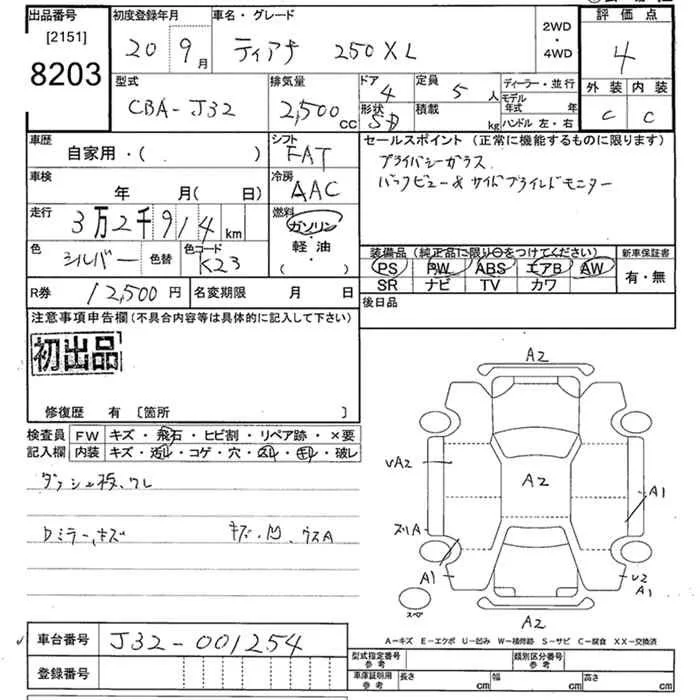 出品番号 初度登録年月 車名・グレード 2WD・4WD 評価点
[2151]
8203 20 9月 ティアナ 250XL 4
型式 排気量 ドア 定員 ディーラー・並行 外装 内装
CBA-J32 2,500CC 4 5人 モデル年式 年 C C
形状 積載 kg ハンドル 左・右
車歴 シフト セールスポイント (正常に機能するものに限ります)
自家用・( ) FAT プライバシーガラス
車検 冷房 バックビュー&サイドブラインドモニター
年 月( 日) AAC
走行 燃料
3万2千914km ガソリン・軽油・( )
色 色替 色コード 装備品(純正品に限り○をつけてください) 新車保証書
シルバー K23 PS PW ABS エアB AW 有・無
SR ナビ TV カワ
R券 12,500円 名変期限 月 日 後日品
注意事項申告欄(不具合内容等は具体的に記入して下さい)
初出品
修復歴 有 [箇所 ]
検査員記入欄 FW キズ・飛石・ヒビ割・リペア跡・×要
内装 キズ・汚レ・コゲ・穴・スレ・キレ・破レ
ダッシュ板、ワレ
Dミラー、キズ キズ、凹、ウスA
A2
VA2
A2
A1
ズリA
A1
V2
A1
スペア
A2
A-キズ E-エクボ U-凹み W-補修跡 S-サビ C-腐食 XX-交換済
車台番号 J32-001254
型式指定番号 参考 類別区分番号 参考
登録番号 車庫証明用 参考 長さ cm 幅 cm 高さ cm